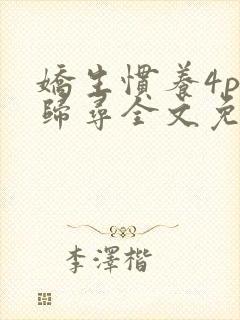 嬌生慣養4p
歸尋全文免
李澤楷